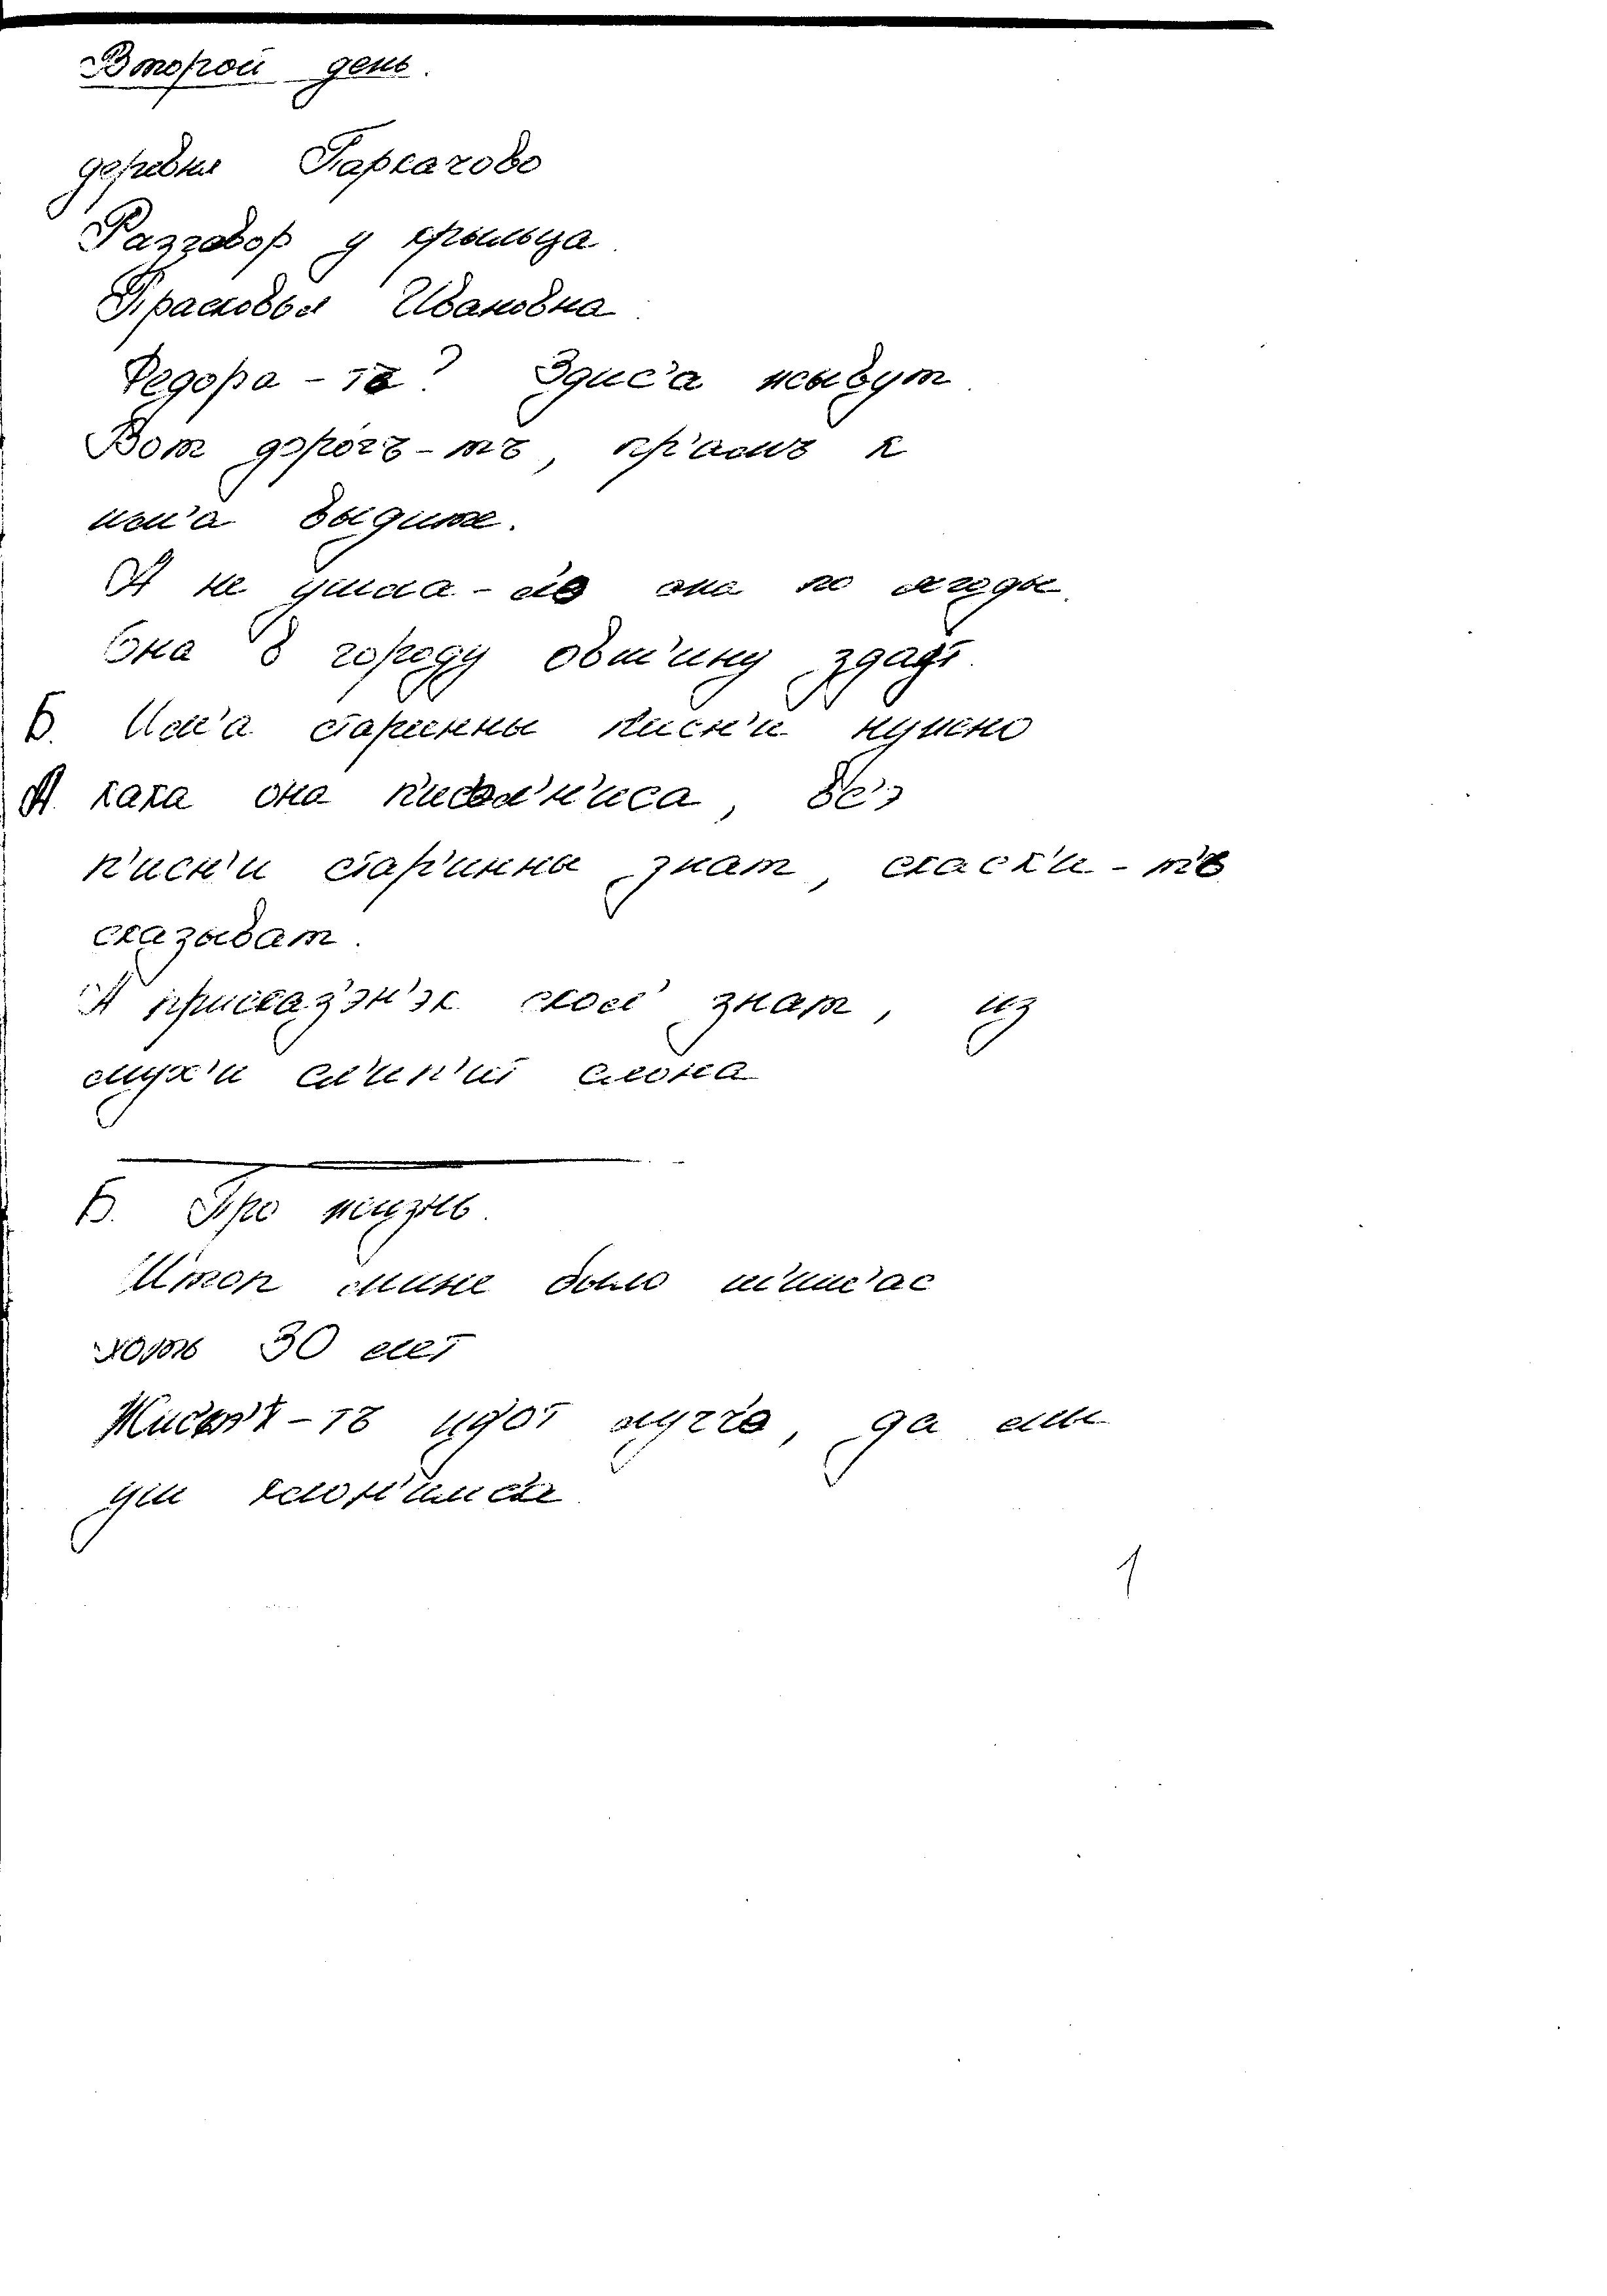 Второй день.
деревня Паркачово
Разговор у крыльца.
Прасковья Ивановна.
Федора-тъ? Здис'а жывут.
Вот дорогъ-тъ, пр'амъ к
им'а выдите.
А не ушла-ле она по ягоды.
Она в городу овш'ину здаст.
Б. Им'а старинны писн'и нужно
А кака она п'ис'н'иса, вс'э
п'исн'и стар'инны знат, скаск'и-т'ь
сказыват.
А присказ'эн'эк скол' знат, из
мух'и сл'ип'ит слона
Б. Про жизнь.
Штоп мине было ш'иш'ас
хоть 30 лет
-тъ идот лучче, да мы
уш клон'имсе
1